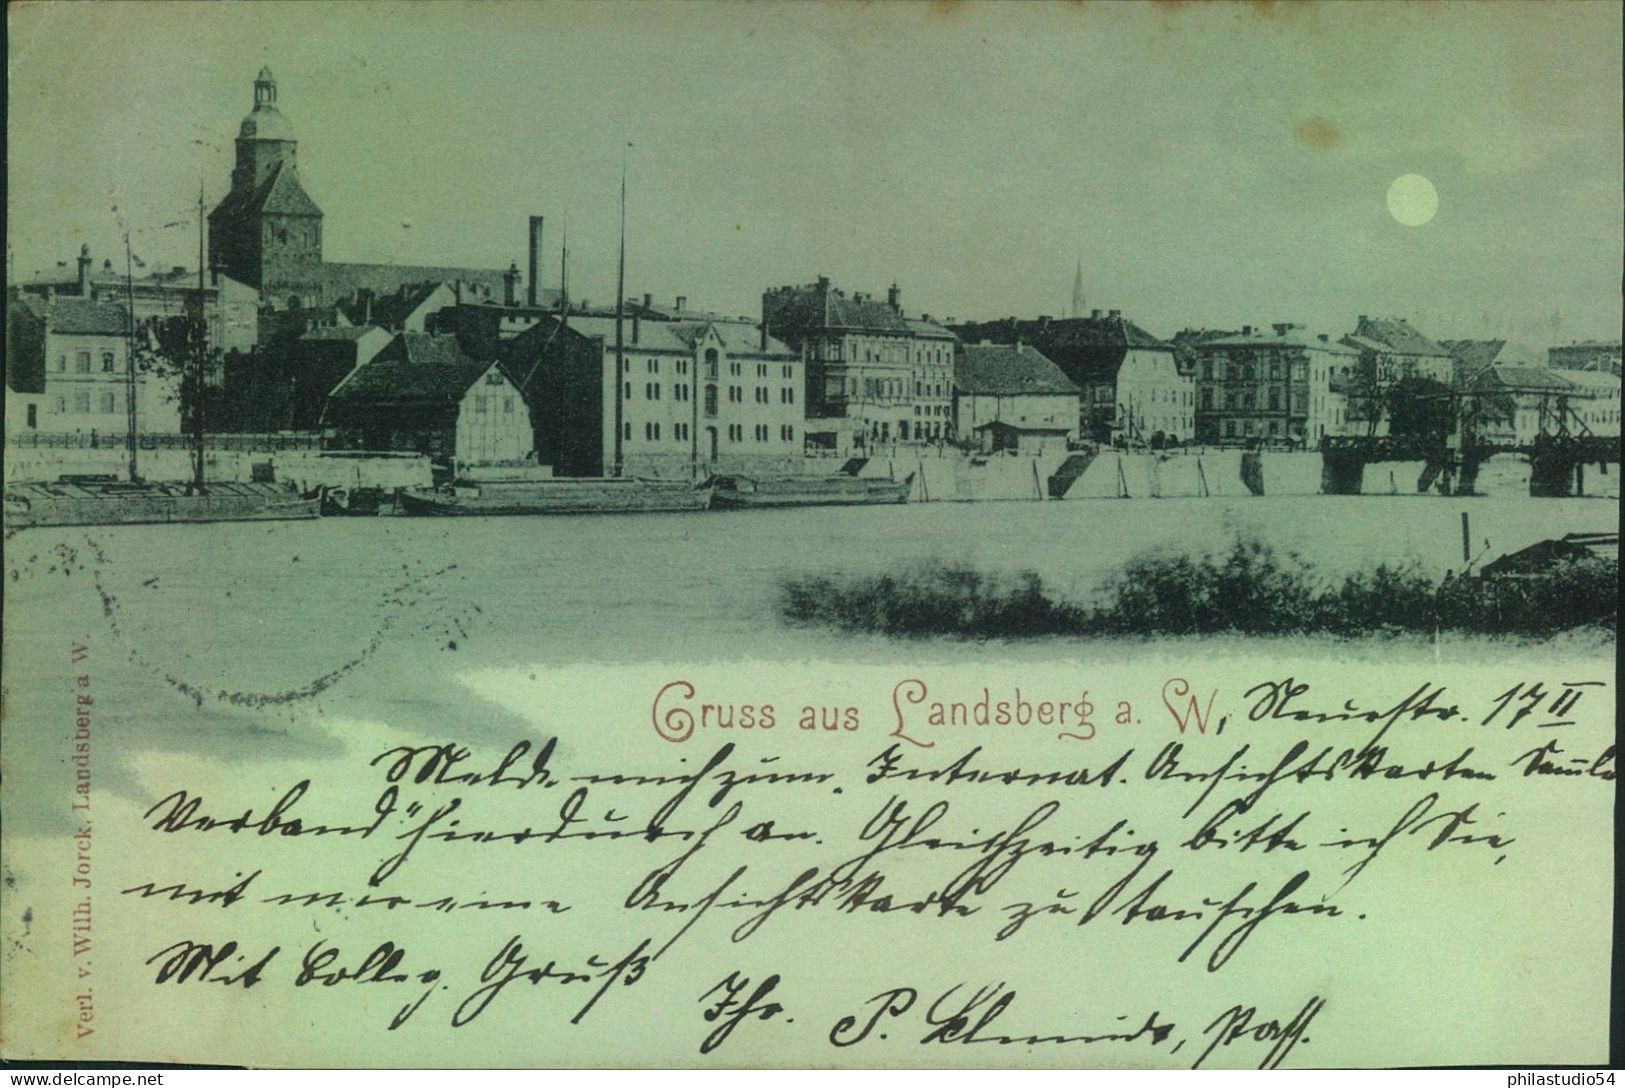 Gruss aus Landsberg a. W., Neuestr. 17 II
Melde mich zum „Internat. Ansichtskarten Samml
Verband“ hierdurch an. Gleichzeitig bitte ich Sie,
mit mir eine Ansichtskarte zu tauschen.
Mit Colleg. Gruß
Ihr. P.
Verl. v. Wilh. Jorck. Landsberg a W.
philastudio54